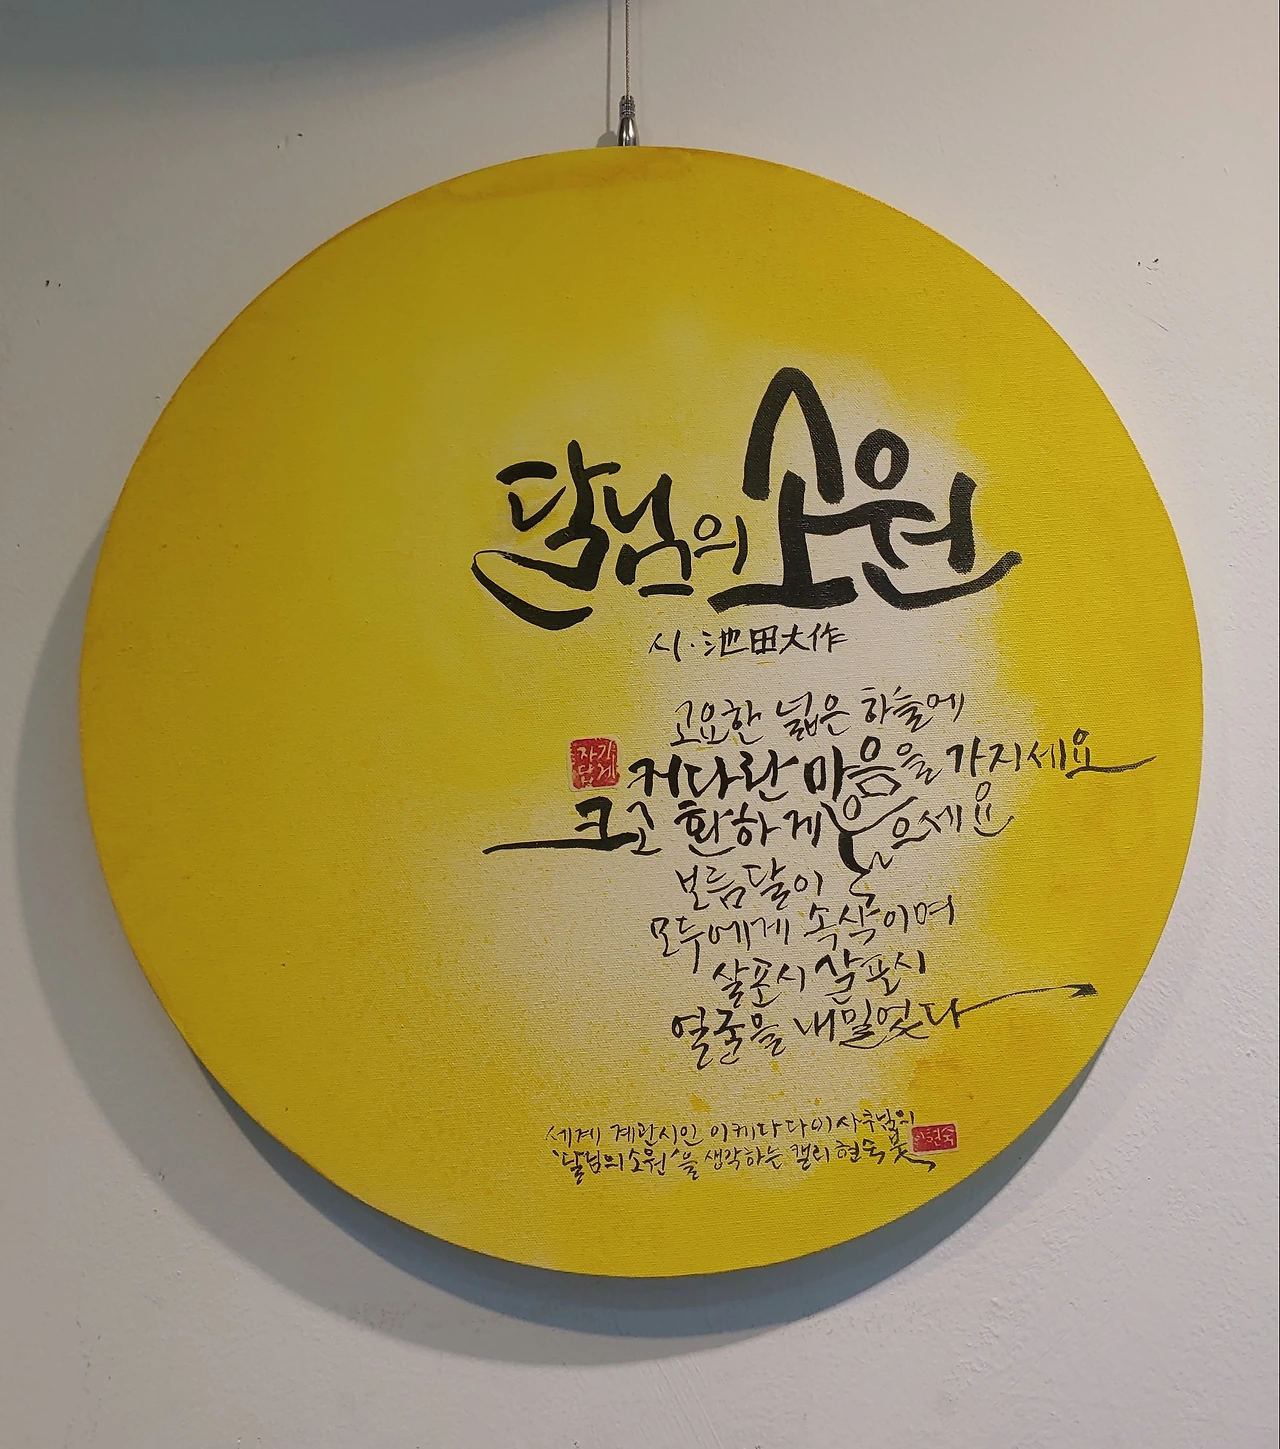 달님의 소원
시·池田大作
고요한 넓은 하늘에
커다란 마음을 가지세요
자기
답게
크고 환하게 웃으세요
보름달이
모두에게 속삭이며
살포시 살포시
얼굴을 내밀었다
세계 계관시인 이케다 다이사쿠님의
'달님의 소원'을 생각하는 캘리 현숙 붓
현숙